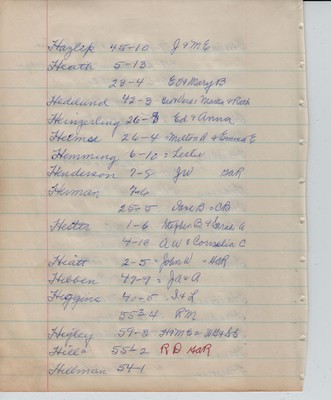 Hazlip 45-10 J & M E
Heath 5-13
28-4 Ed & Mary B
Hedlund 42-3 Martha & Ruth
Heinzerling 26-8 Ed & Anna
Helmse 26-4 = Milton A & Emma E
Hemming 6-10 = Leslie
Henderson 7-8 JW GAR
Herman 7-6
25-5 Dave B = CB
Hester 1-6 Stephen B & Sarah A
4-16 A W & Cornelia C
Hiatt 2-5 = John W = GAR
Hibben 47-9 = JA & A
Higgins 40-5 I & L
55-4 RM
Higley 59-8
Hill 55-2 R D GAR
Hillman 54-1